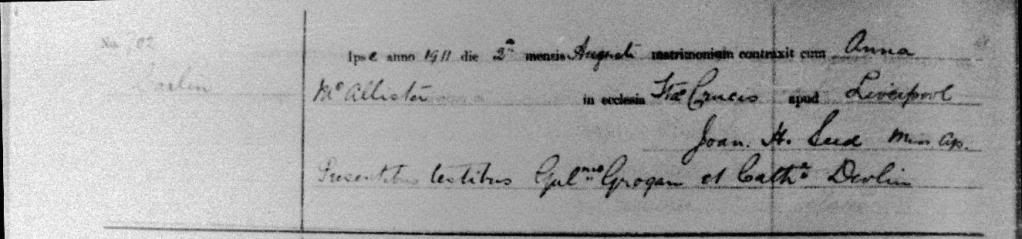 Ipse anno 1911 die 2a mensis Augusti matrimonium contraxit cum Anna
McAllister in ecclesia Stae Crucis apud Liverpool
Joan. H. Seed Miss Ap.
Presentibus testibus Gulmo Grogan et Catha Devlin